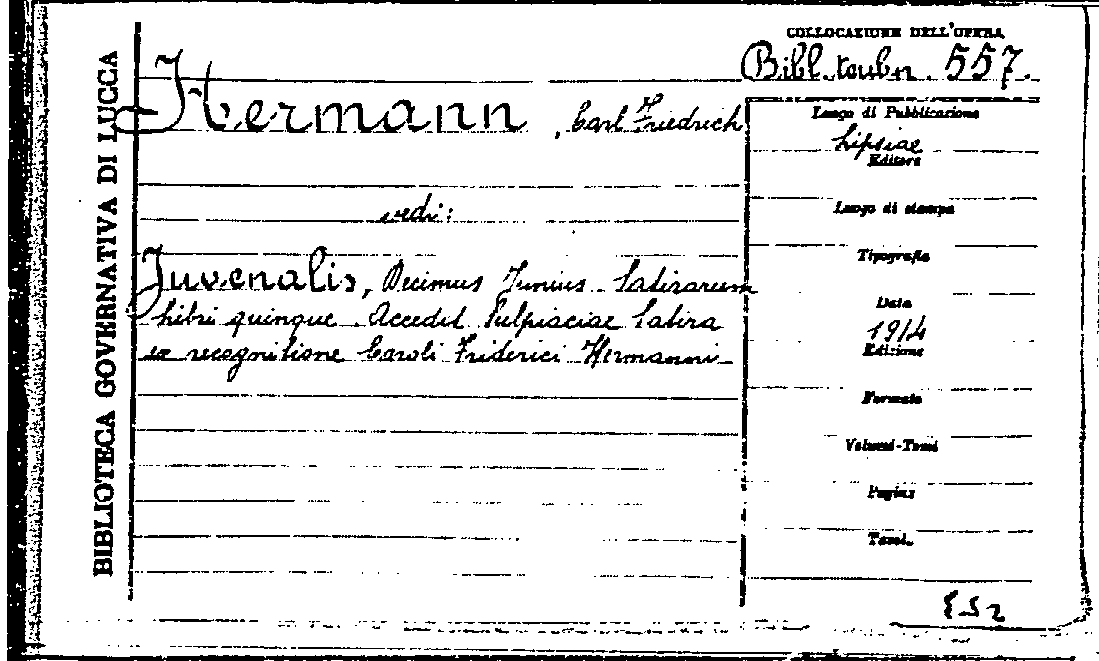 BIBLIOTECA GOVERNATIVA DI LUCCA
COLLOCAZIONE DELL'OPERA
Bibl. teubn. 557.
Hermann, Carl Friedrich
vedi:
Juvenalis, Decimus Junius. Satirarum
libri quinque. Accedit Sulpiciae Satira
ex recognitione Caroli Friderici Hermanni
Luogo di Pubblicazione
Lipsiae
Editore
Luogo di stampa
Tipografia
Data
1914
Edizione
Formato
Volumi-Tomi
Pagine
Tavol.